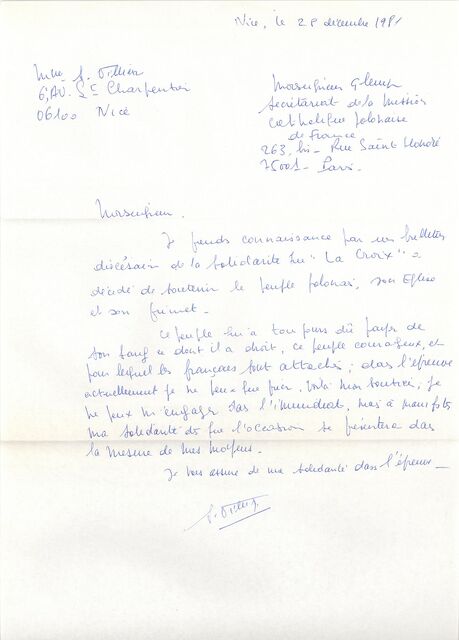 Nice, le 28 décembre 1981
Mme S.
6, AV. Charpentier
06100 Nice
Monseigneur Glemp
secrétariat de la Mission
Catholique polonaise
de France
263, bis - Rue Saint Honoré
75001 - Paris.
Monseigneur.
Je prends connaissance par un bulletin
diocésain de la solidarité que "La Croix" a
décidé de soutenir le peuple polonais, son Eglise
et son primat.
Ce peuple qui a toujours dû payer de
son sang ce dont il a droit, ce peuple courageux, et
pour lequel les français sont attachés ; dans l'épreuve
actuellement je ne peux que prier. Voilà mon soutien, je
ne peux m'engager dans l'immédiat, mais à manifester
ma solidarité dès que l'occasion se présentera dans
la mesure de mes moyens.
Je vous assure de ma solidarité dans l'épreuve -